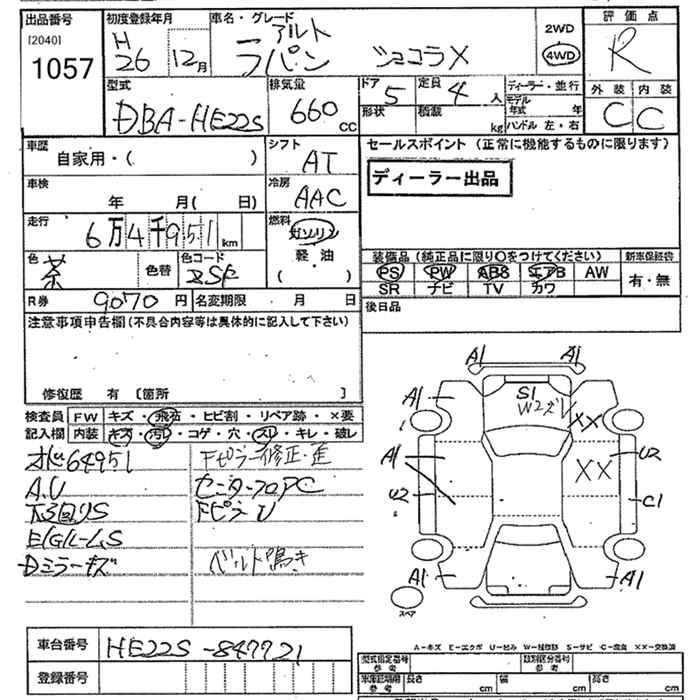 出品番号
[2040]
1057
初度登録年月
H
26 12月
車名・グレード
アルト
ラパン ショコラX
2WD
4WD
評価点
R
型式
DBA-HE22S
排気量
660 CC
ドア
5
定員
4 人
形状
積載
kg
ディーラー・並行
モデル年式 年
ハンドル 左・右
外装 内装
C C
車歴
自家用・( )
シフト
AT
セールスポイント (正常に機能するものに限ります)
ディーラー出品
車検
年 月( 日)
冷房
AAC
走行
6万4千951km
燃料
ガソリン
軽油
( )
色
茶
色替
色コード
ZSF
装備品 (純正品に限り○をつけてください)
新車保証書
PS PW ABS エアB AW
SR ナビ TV カワ
有・無
R券 9070円
名変期限 月 日
後日品
注意事項申告欄(不具合内容等は具体的に記入して下さい)
修復歴 有 〔箇所 〕
検査員
記入欄
FW キズ・飛石・ヒビ割・リペア跡・×要
内装 キズ・汚レ・コゲ・穴・スレ・キレ・破レ
64951
A.U
下回りS
E/GルームS
Dミラーキズ
Fピラー修正・歪
センターフロアC
FピラーU
ベルト鳴き
A1 A1
A1
S1
W2
XX
A1
U2
XX
U2
C1
A1
A1
スペア
車台番号
HE22S-847721
登録番号
A-キズ E-エクボ U-凹み W-補修跡 S-サビ C-腐食 XX-交換済
型式指定番号
参考
類別区分番号
参考
車庫証明用
参考
長さ cm
幅 cm
高さ cm